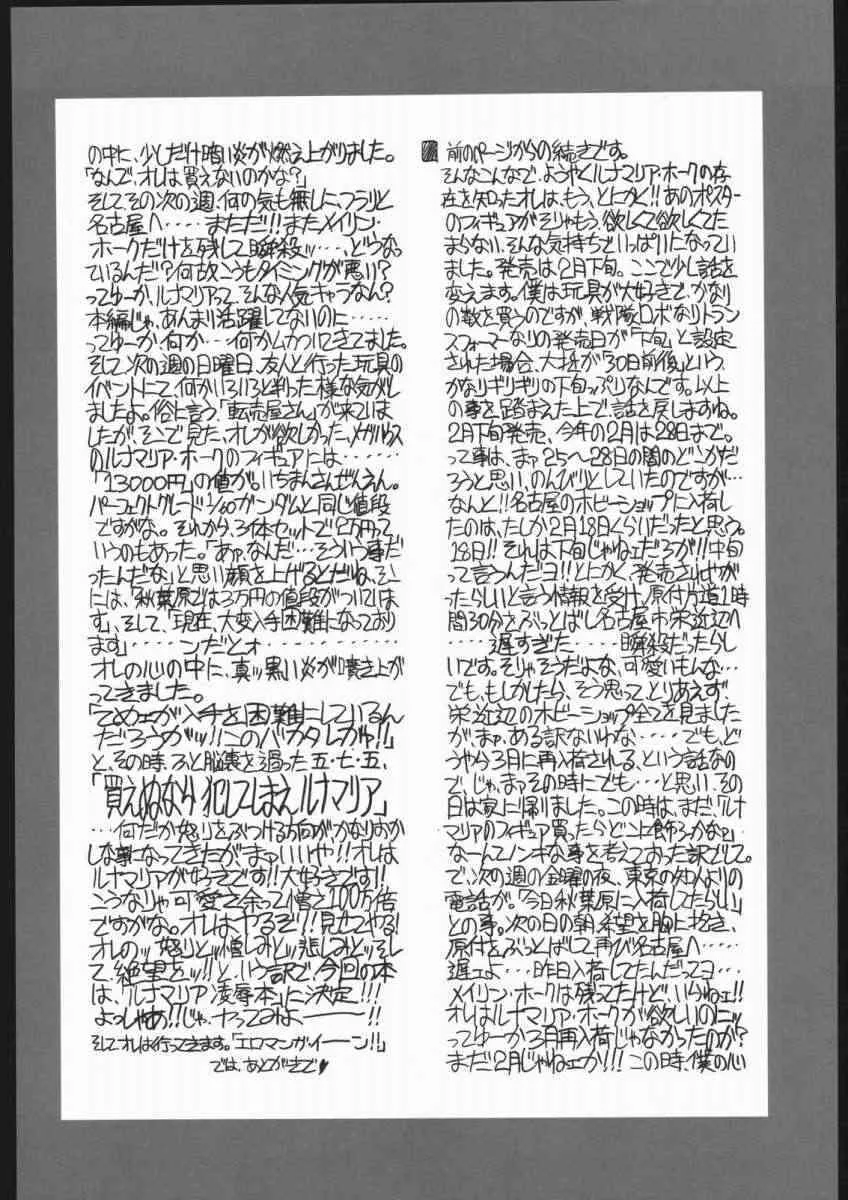 前のページからの続きです。
そんなこんなで、ようやくルナマリア・ホークの存
在を知ったオレは、もう、とにかく!!あのポスター
のフィギュアがそりゃもう、欲しくて欲しくてた
まらない、そんな気持ちでいっぱいになってい
ました。発売は2月下旬。ここで少し話を
変えます。僕は玩具が大好きで、かなり
の数を買うのですが、戦隊ロボなりトラン
スフォーマーなりの発売日が「下旬」と設定
された場合、大抵が「30日前後」という、
かなりギリギリの下旬っぷりなんです。以上
の事を踏まえた上で話を戻しますね。
2月下旬発売、今年の2月は28日まで。
って事は、まァ25〜28日の間のどこかだ
ろうと思い、のんびりとしていたのですが…
なんと!!名古屋のホビーショップに入荷し
たのは、たしか2月18日くらいだったと思う。
18日!!それは下旬じゃねェだろが!!中旬
って言うんだヨ!!とにかく、発売されやが
ったらしいと言う情報を受け、原付片道1時
間30分をぶっとばし名古屋市栄近辺へ
……遅すぎた……瞬殺だったらし
いです。そりゃそうだよな、可愛いもんな…
でも、もしかしたら、そう思って、とりあえず、
栄近辺のホビーショップ全てを見ました
が、まァ、ある訳ないわな……でも、ど
うやら3月に再入荷される、という話なの
で、じゃ、まァその時にでも…と思い、その
日は家に帰りました。この時は、まだ、「ルナ
マリアのフィギュア買ったらどこに飾ろかなァ」
なーんてノンキな事を考えておった訳でして。
で、次の週の金曜の夜、東京の知人よりの
電話が。「今日秋葉原に入荷したらしい」
との事。次の日の朝、希望を胸に抱き、
原付をぶっとばして再び名古屋へ……
遅ェよ…昨日入荷してたんだってヨ…
メイリン・ホークは残ってたけど、いらねェ!!
オレはルナマリア・ホークが欲しいのニッ
ってゆーか3月再入荷じゃなかったのか?
まだ2月じゃねェか!!!この時、僕の心
の中に、少しだけ暗い炎が燃え上がりました。
「なんで、オレは買えないのかな?」
そしてその次の週、何の気も無しに、フラリと
名古屋へ……まただ!!またメイリン・
ホークだけを残して瞬殺ッ…、どうなっ
ているんだ?何故こうもタイミングが悪い?
ってゆーか、ルナマリアって、そんな人気キャラなん?
本編じゃ、あんまり活躍してないのに……
ってゆーか何か…何かムカついてきてました。
そして次の週の日曜日、友人と行った玩具の
イベントにて、何かいろいろと判った様な気がし
ましたよ。俗に言う「転売屋さん」が来ていま
したが、そこで見た、オレが欲しかった、メガハウス
のルナマリア・ホークのフィギュアには………
「13000円」の値が。いちまんさんぜんえん。
パーフェクトグレード1/60ガンダムと同じ値段
ですがな。それから、3体セットで2万円って
いうのもあった。「あァ、なんだ…そういう事だ
ったんだな」と思い顔を上げるとだね、そこ
には、「秋葉原では3万円の値段がついていま
す」、そして、「現在、大変入手困難になっており
ます」……ンだとォ…
オレの心の中に、真ッ黒い炎が噴き上が
ってきました。
「てめェが入手を困難にしているん
だろうがッ!!このバカタレがァ!!」
と、その時、ふと脳裏を過った五・七・五、
「買えぬなら 犯してしまえ ルナマリア」
…何だか怒りをぶつける方向がかなりおか
しな事になってきたが、まァいいや!!オレは
ルナマリアが好きです!!大好きです!!
こうなりゃ可愛さ余って憎さ100万倍
ですがな。オレはやるぞ!!見せてやる!
オレのッ怒りとッ憎しみとッ悲しみとッそし
て、絶望をッ!!と、いう訳で、今回の本
は、「ルナマリア凌辱本」に決定!!!
よっしゃあ!!!じゃ、ヤッてみよ――――!!
そしてオレは行ってきます。「エロマンガ・イーーン!!」
では、あとがきで♥